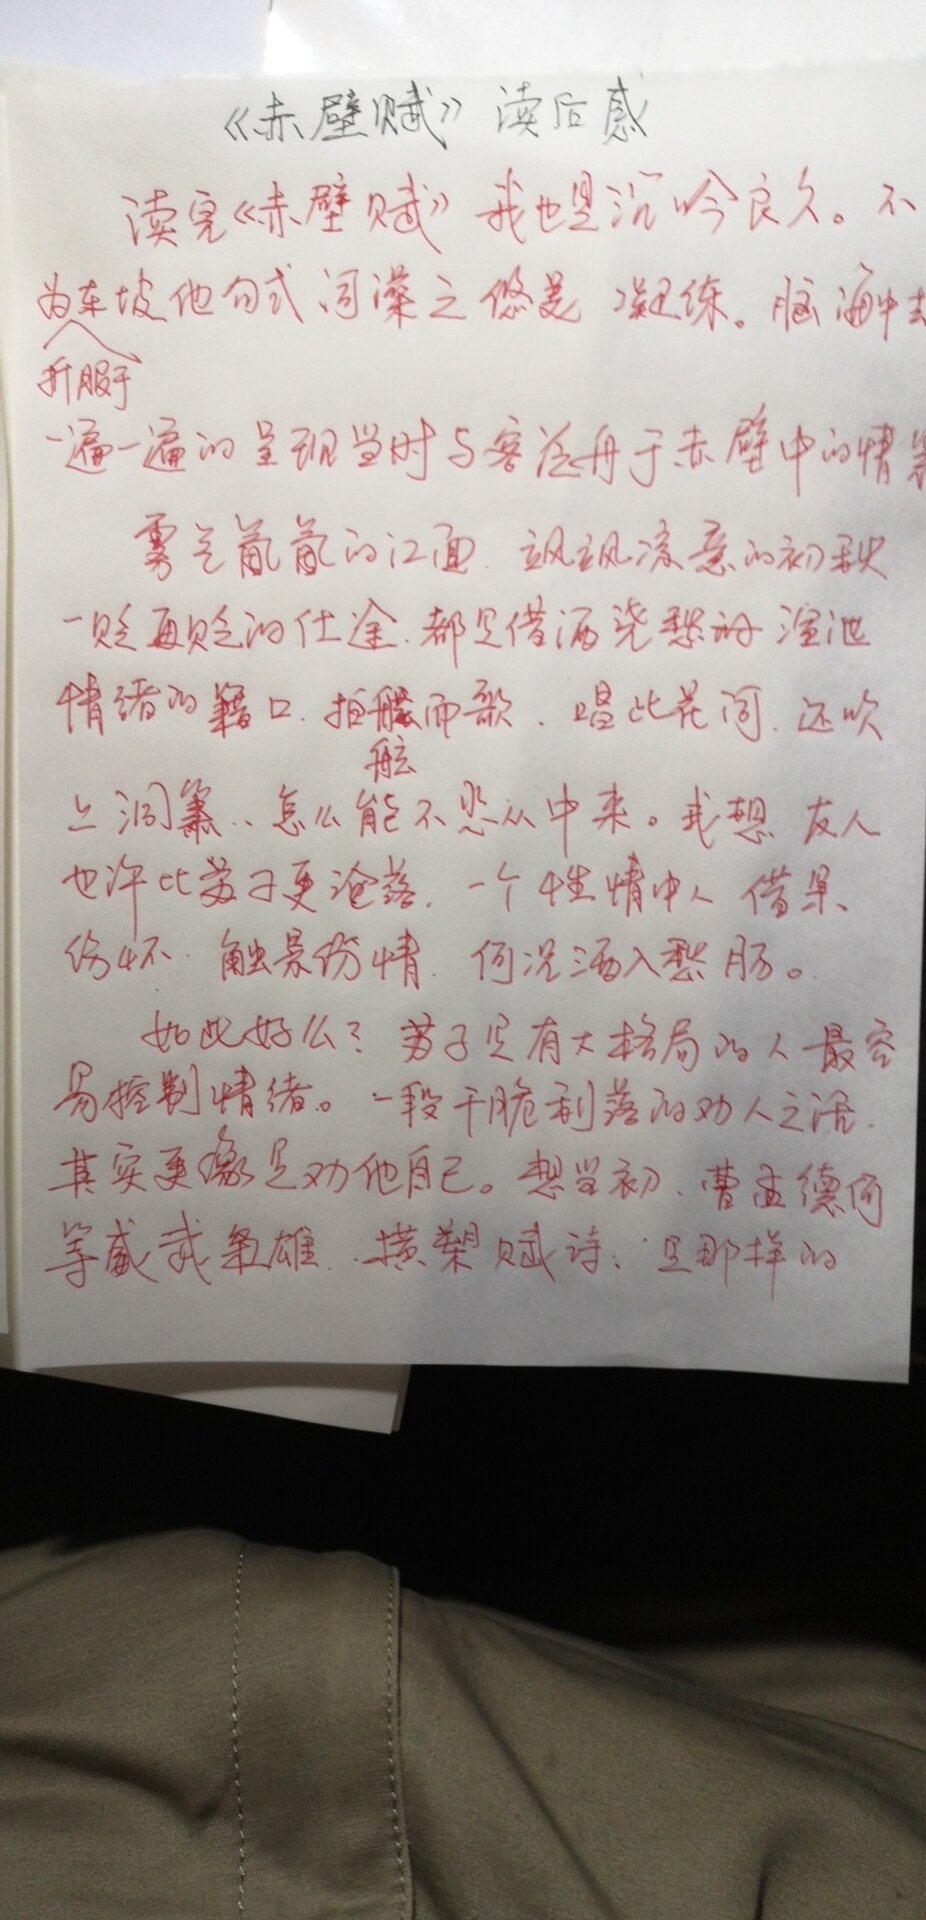 《赤壁赋》读后感
读完《赤壁赋》我也是沉吟良久。不
为东坡他句式词藻之悠美 凝练。脑海中
折服于
一遍一遍的呈现当时与客泛舟于赤壁中的情
雾气氤氤的江面、飒飒凉意的初秋
一贬再贬的仕途、都是借酒浇愁的渲泄
情绪的籍口、拍而歌、唱此花间、还吹
舷
上洞箫、怎么能不悲从中来。我想 友人
也许比苏子更沧落、一个性情中人 借景
伤怀、触景伤情、何况酒入愁肠。
如此好么？苏子是有大格局的人 最容
易控制情绪。一段干脆利落的劝人之语、
其实更像是劝他自己。想当初、曹孟德何
等威武枭雄、横槊赋诗、是那样的